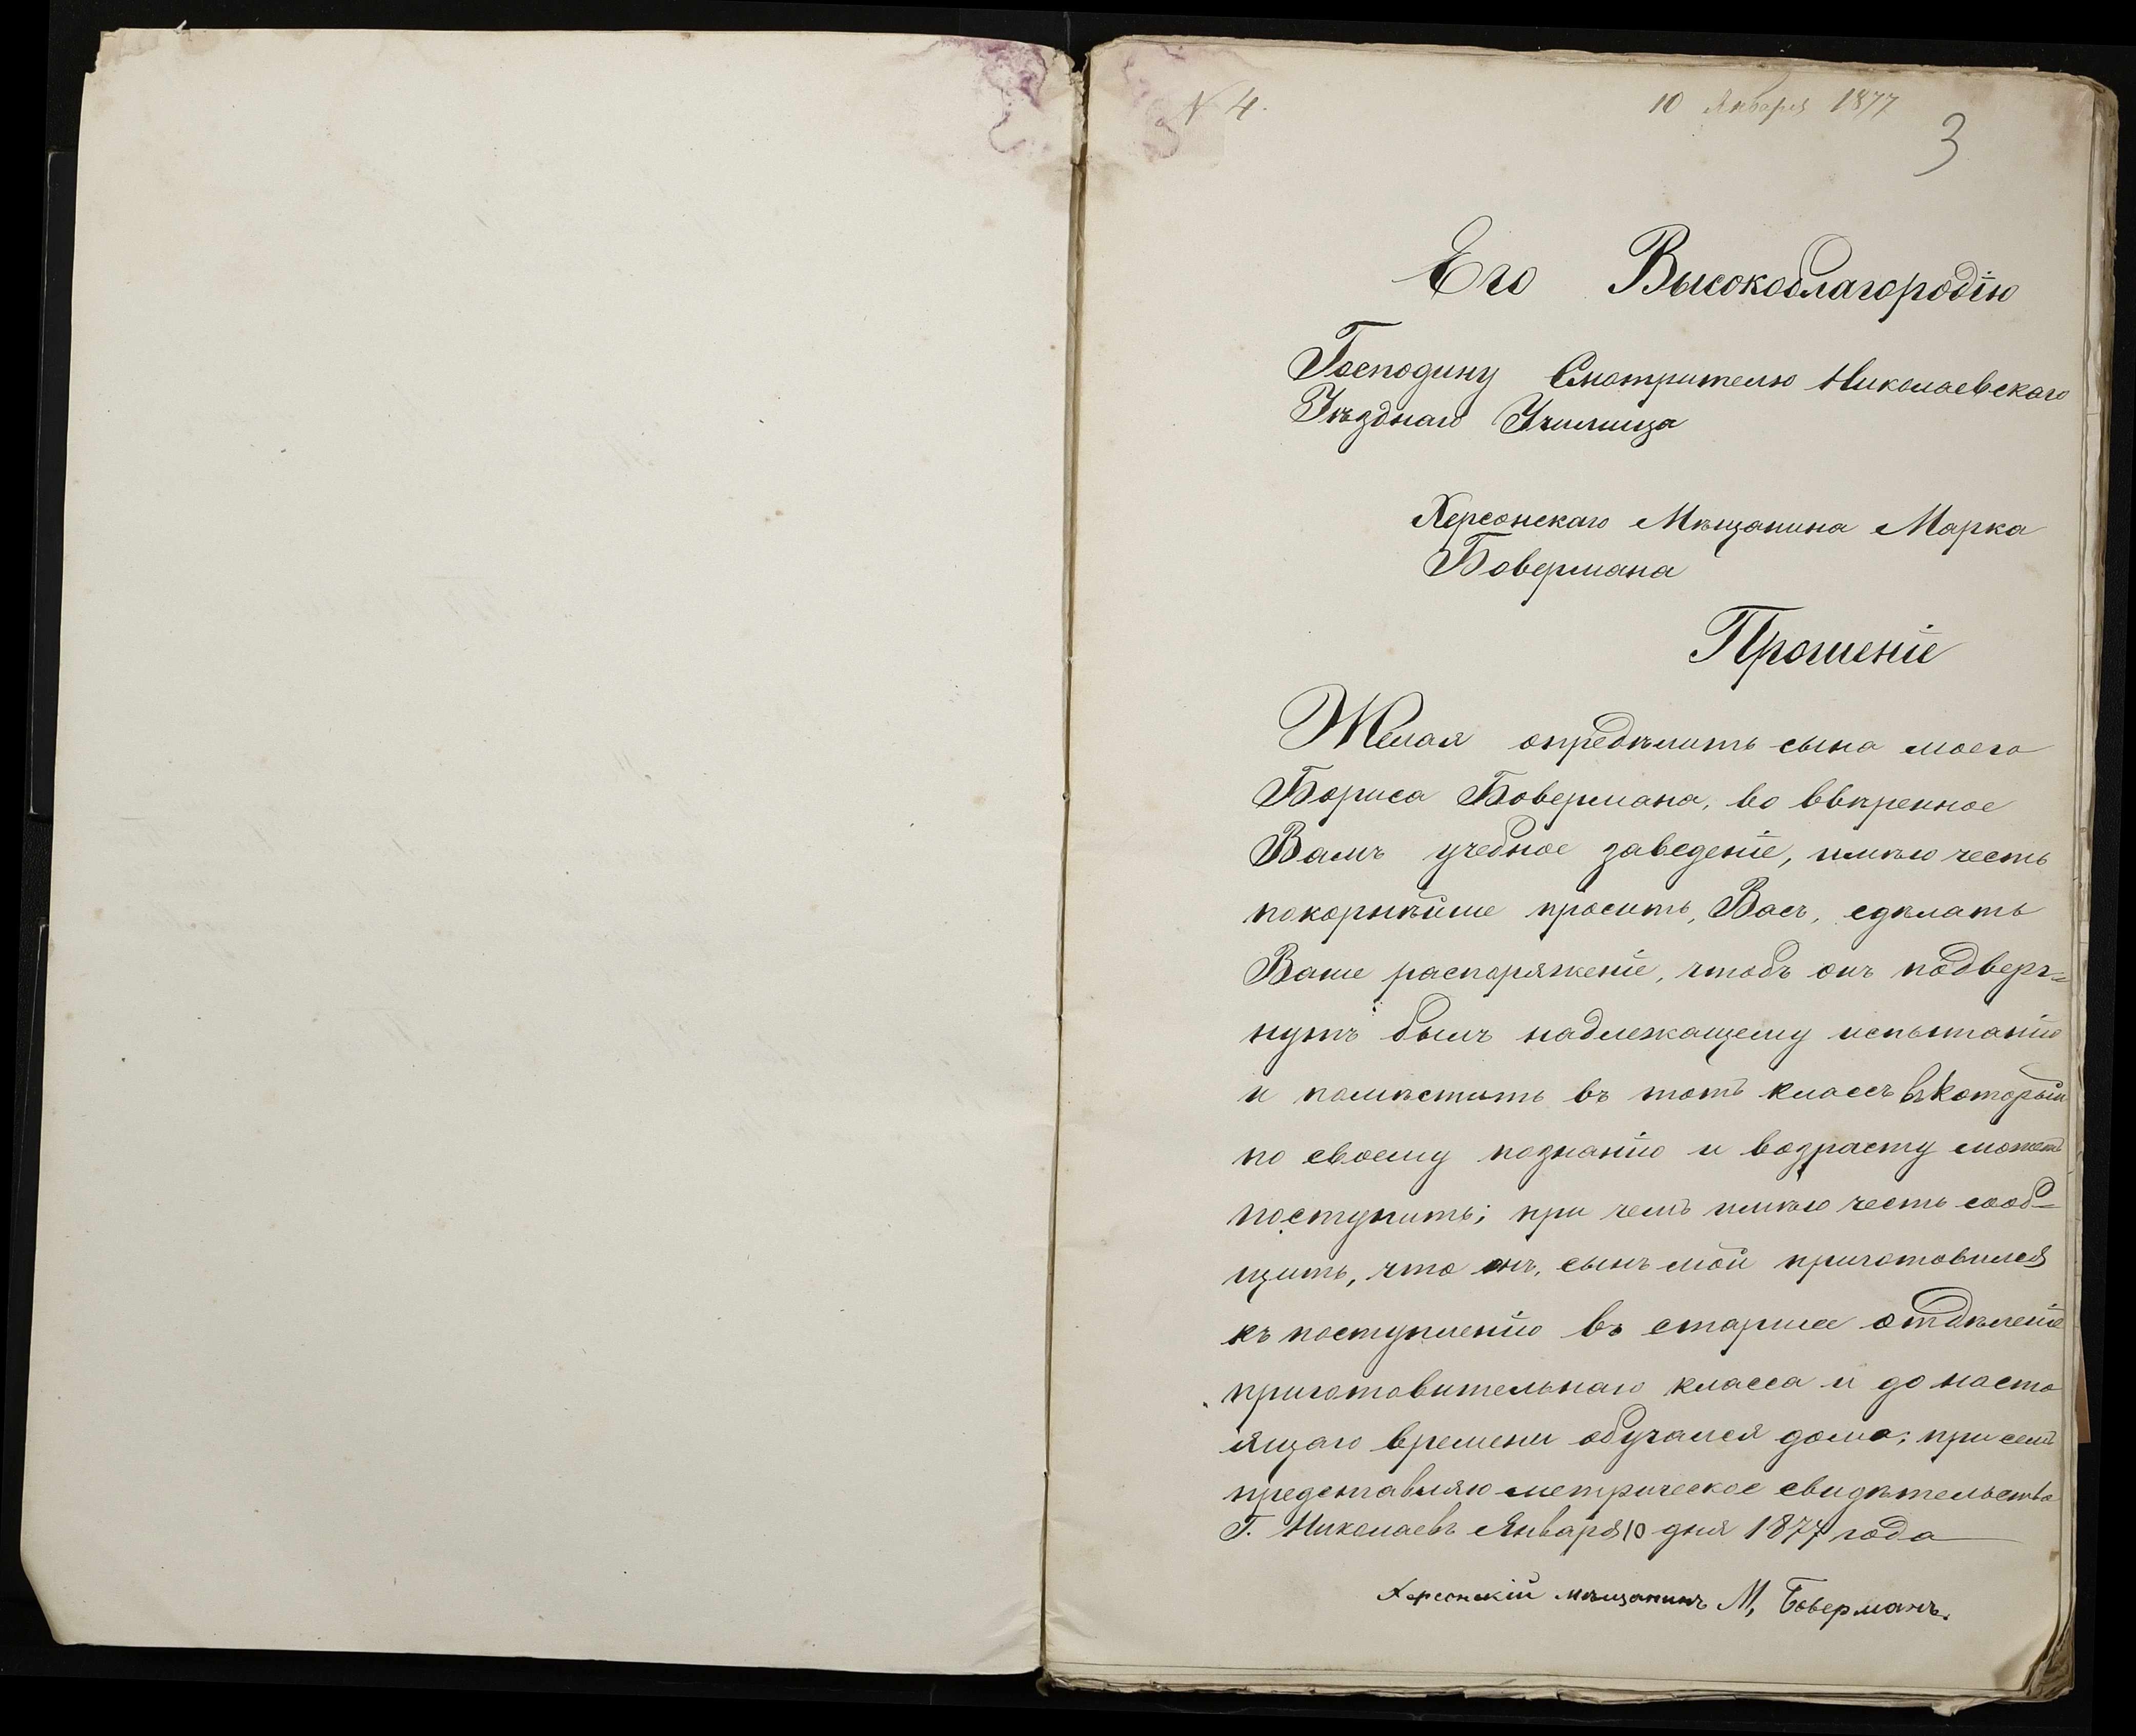 N 4.
10 Января 1877
3
Его Высокоблагородію
Господину Смотрителю Николаевскаго
Уѣзднаго Училища
Херсонскаго Мѣщанина Марка
Бовермана
Прошеніе
Желая опредѣлить сына моего
Бориса Бовермана, во ввѣренное
Вамъ учебное заведеніе, имѣю честь
покорнѣйше просить, Васъ, сдѣлать
Ваше распоряженіе, чтобъ онъ подверг=
нутъ былъ надлежащему испытанію
и помѣстить въ тотъ классъ въ который
по своему познанію и возрасту можетъ
поступить; при чемъ имѣю честь сооб=
щить, что онъ, сынъ мой приготовился
къ поступленію въ старшее отдѣленіе
приготовительнаго класса и до насто
ящаго времени обучался дома; при семъ
представляю метрическое свидѣтельство
Г. Николаевъ Января 10 дня 1877 года
Херсонскій мѣщанинъ М, Боверманъ.